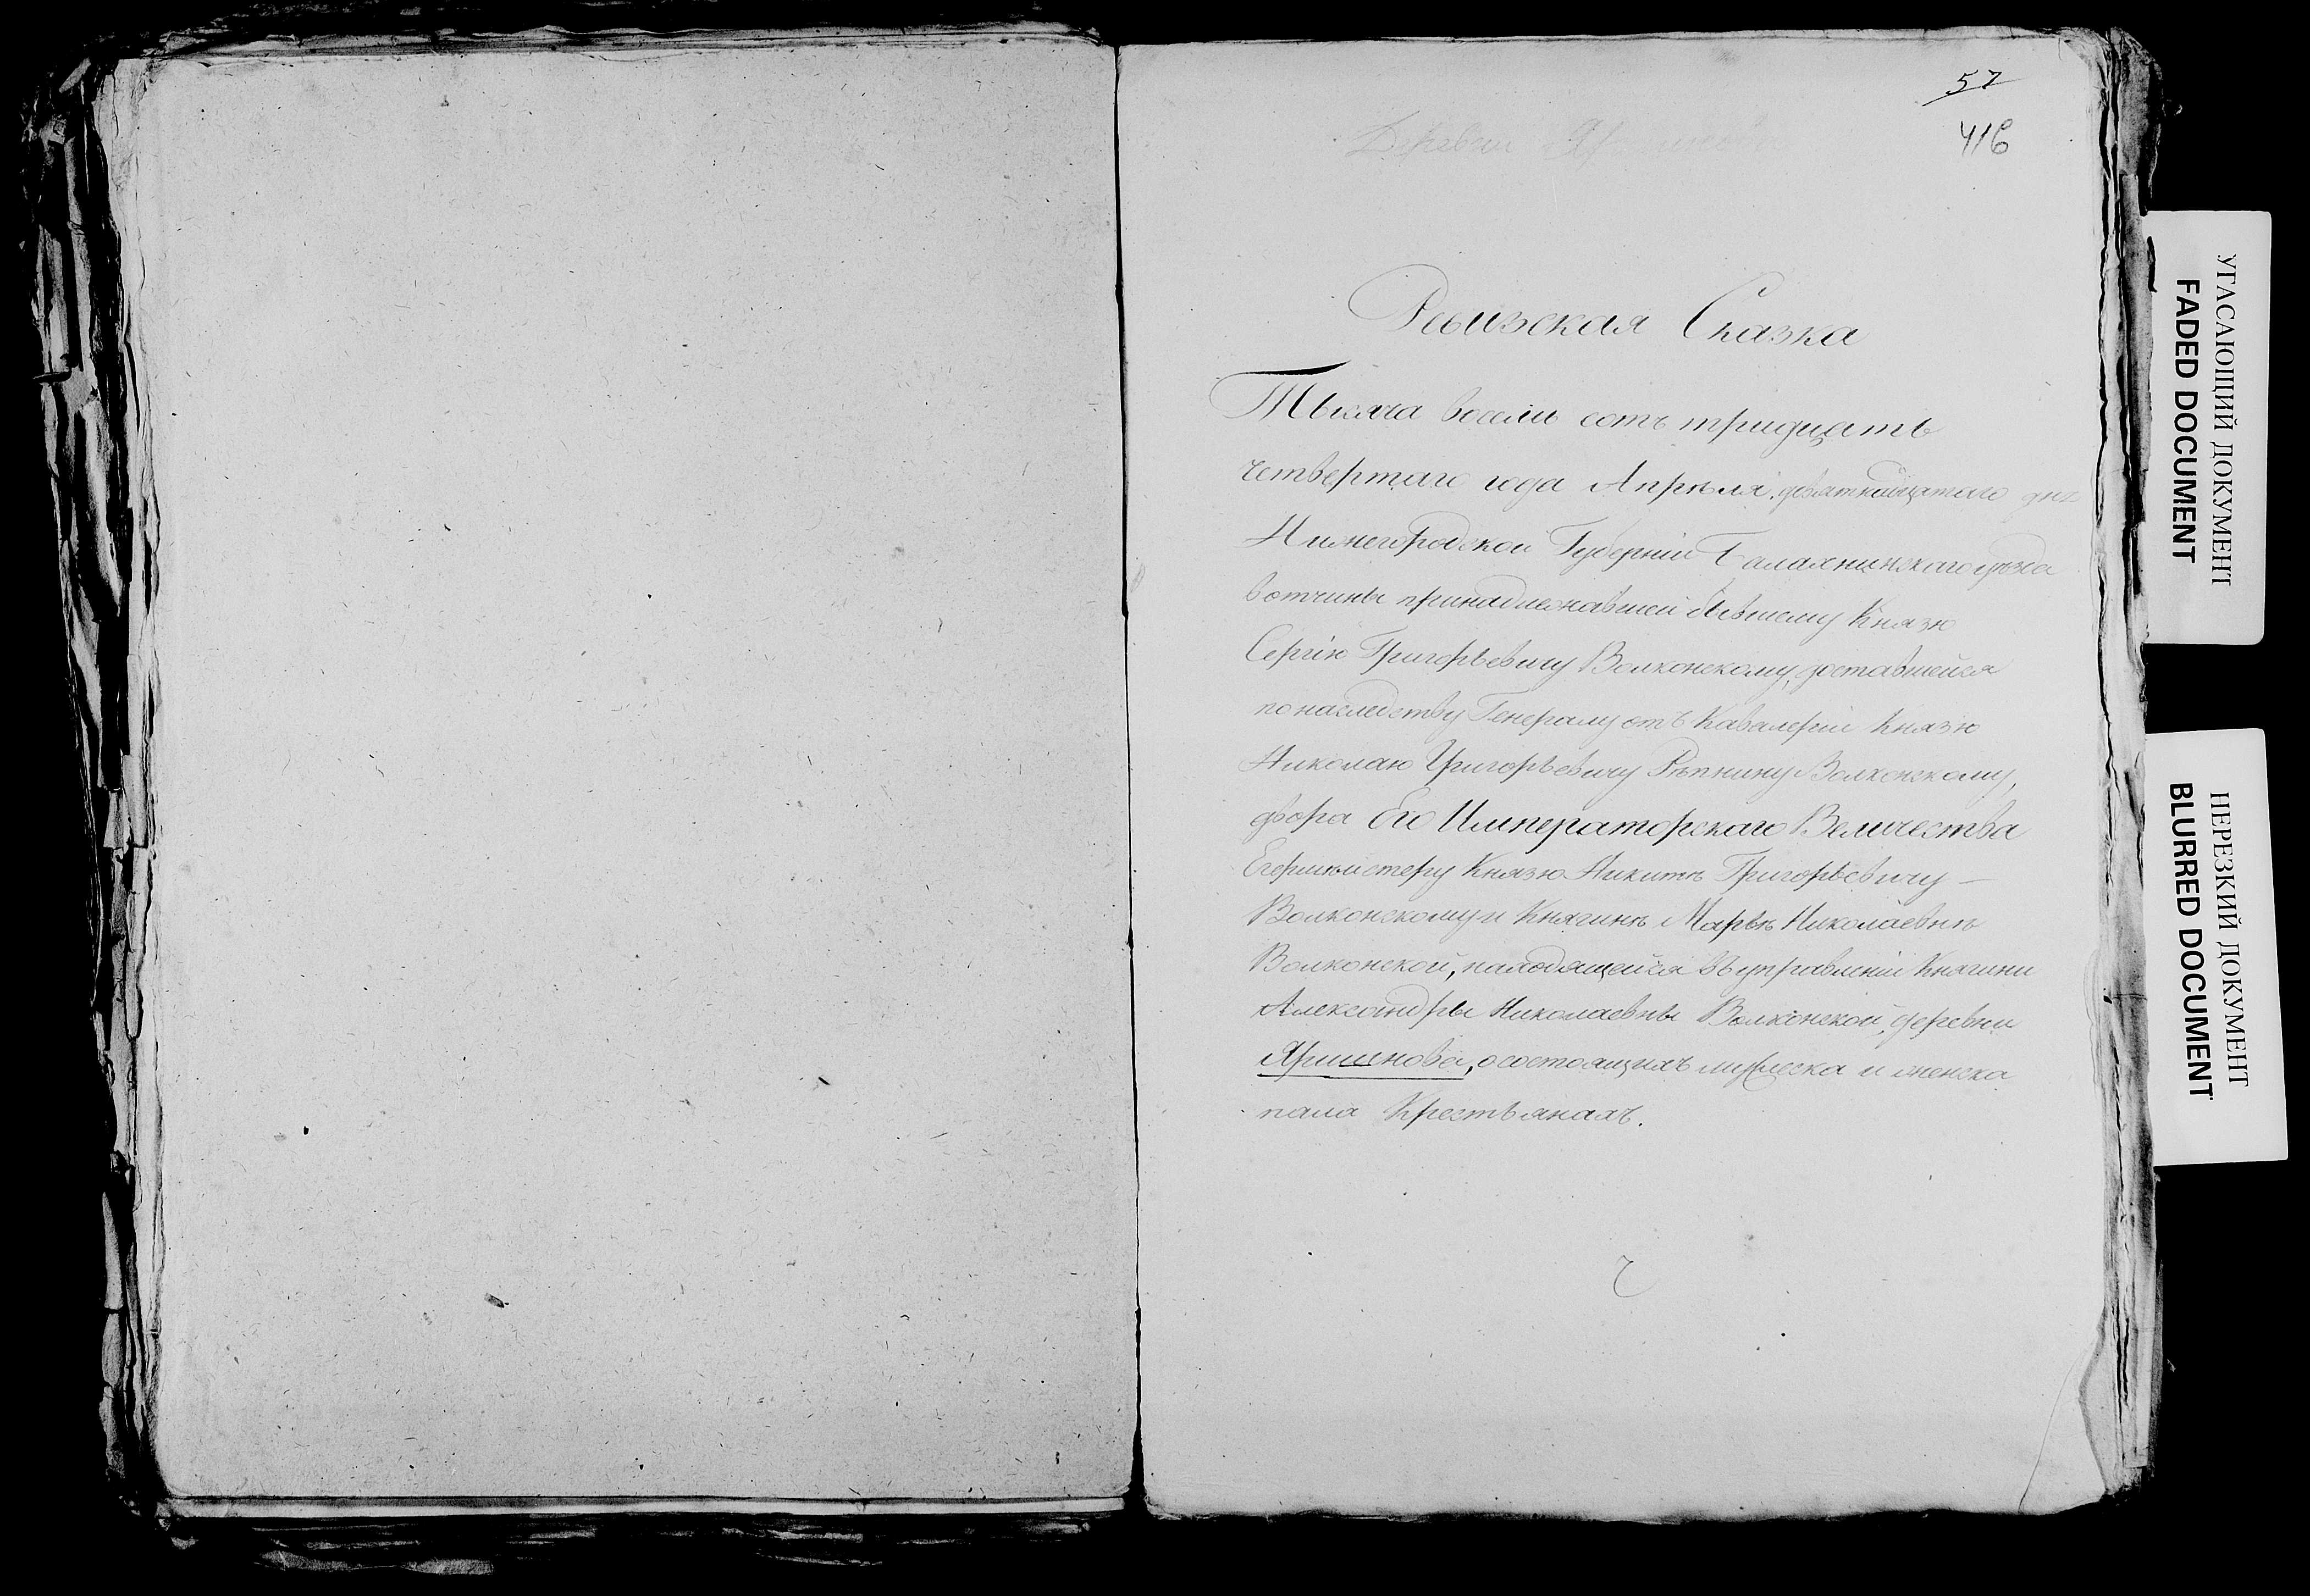 57
416
Деревни
Ревизская Сказка
Тысяча восемь сотъ тридцать
четвертаго года Апрѣля девятнадцатаго дня
Нижегородской Губерніи Балахнинскаго уѣзда
вотчины принадлежавшей бывшему Князю
Сергію Григорьевичу Волконскому, доставшейся
по наслѣдству Генералу отъ Кавалеріи Князю
Николаю Григорьевичу Рѣпнину Волконскому,
двора Его Императорскаго Величества
Егермейстеру Князю Никитѣ Григорьевичу —
Волконскому и Княгинѣ Марьѣ Николаевнѣ
Волконской, находящейся въ управленіи Княгини
Александры Николаевны Волконской, деревни
о состоящихъ мужеска и женска
пола Крестьянахъ.
УГАСАЮЩИЙ ДОКУМЕНТ
FADED DOCUMENT
НЕРЕЗКИЙ ДОКУМЕНТ
BLURRED DOCUMENT